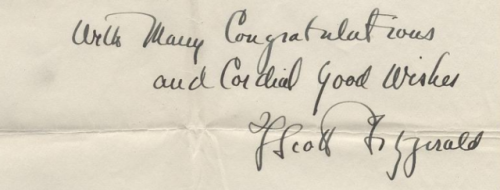 With Many Congratulations
and Cordial Good Wishes
F Scott Fitzgerald